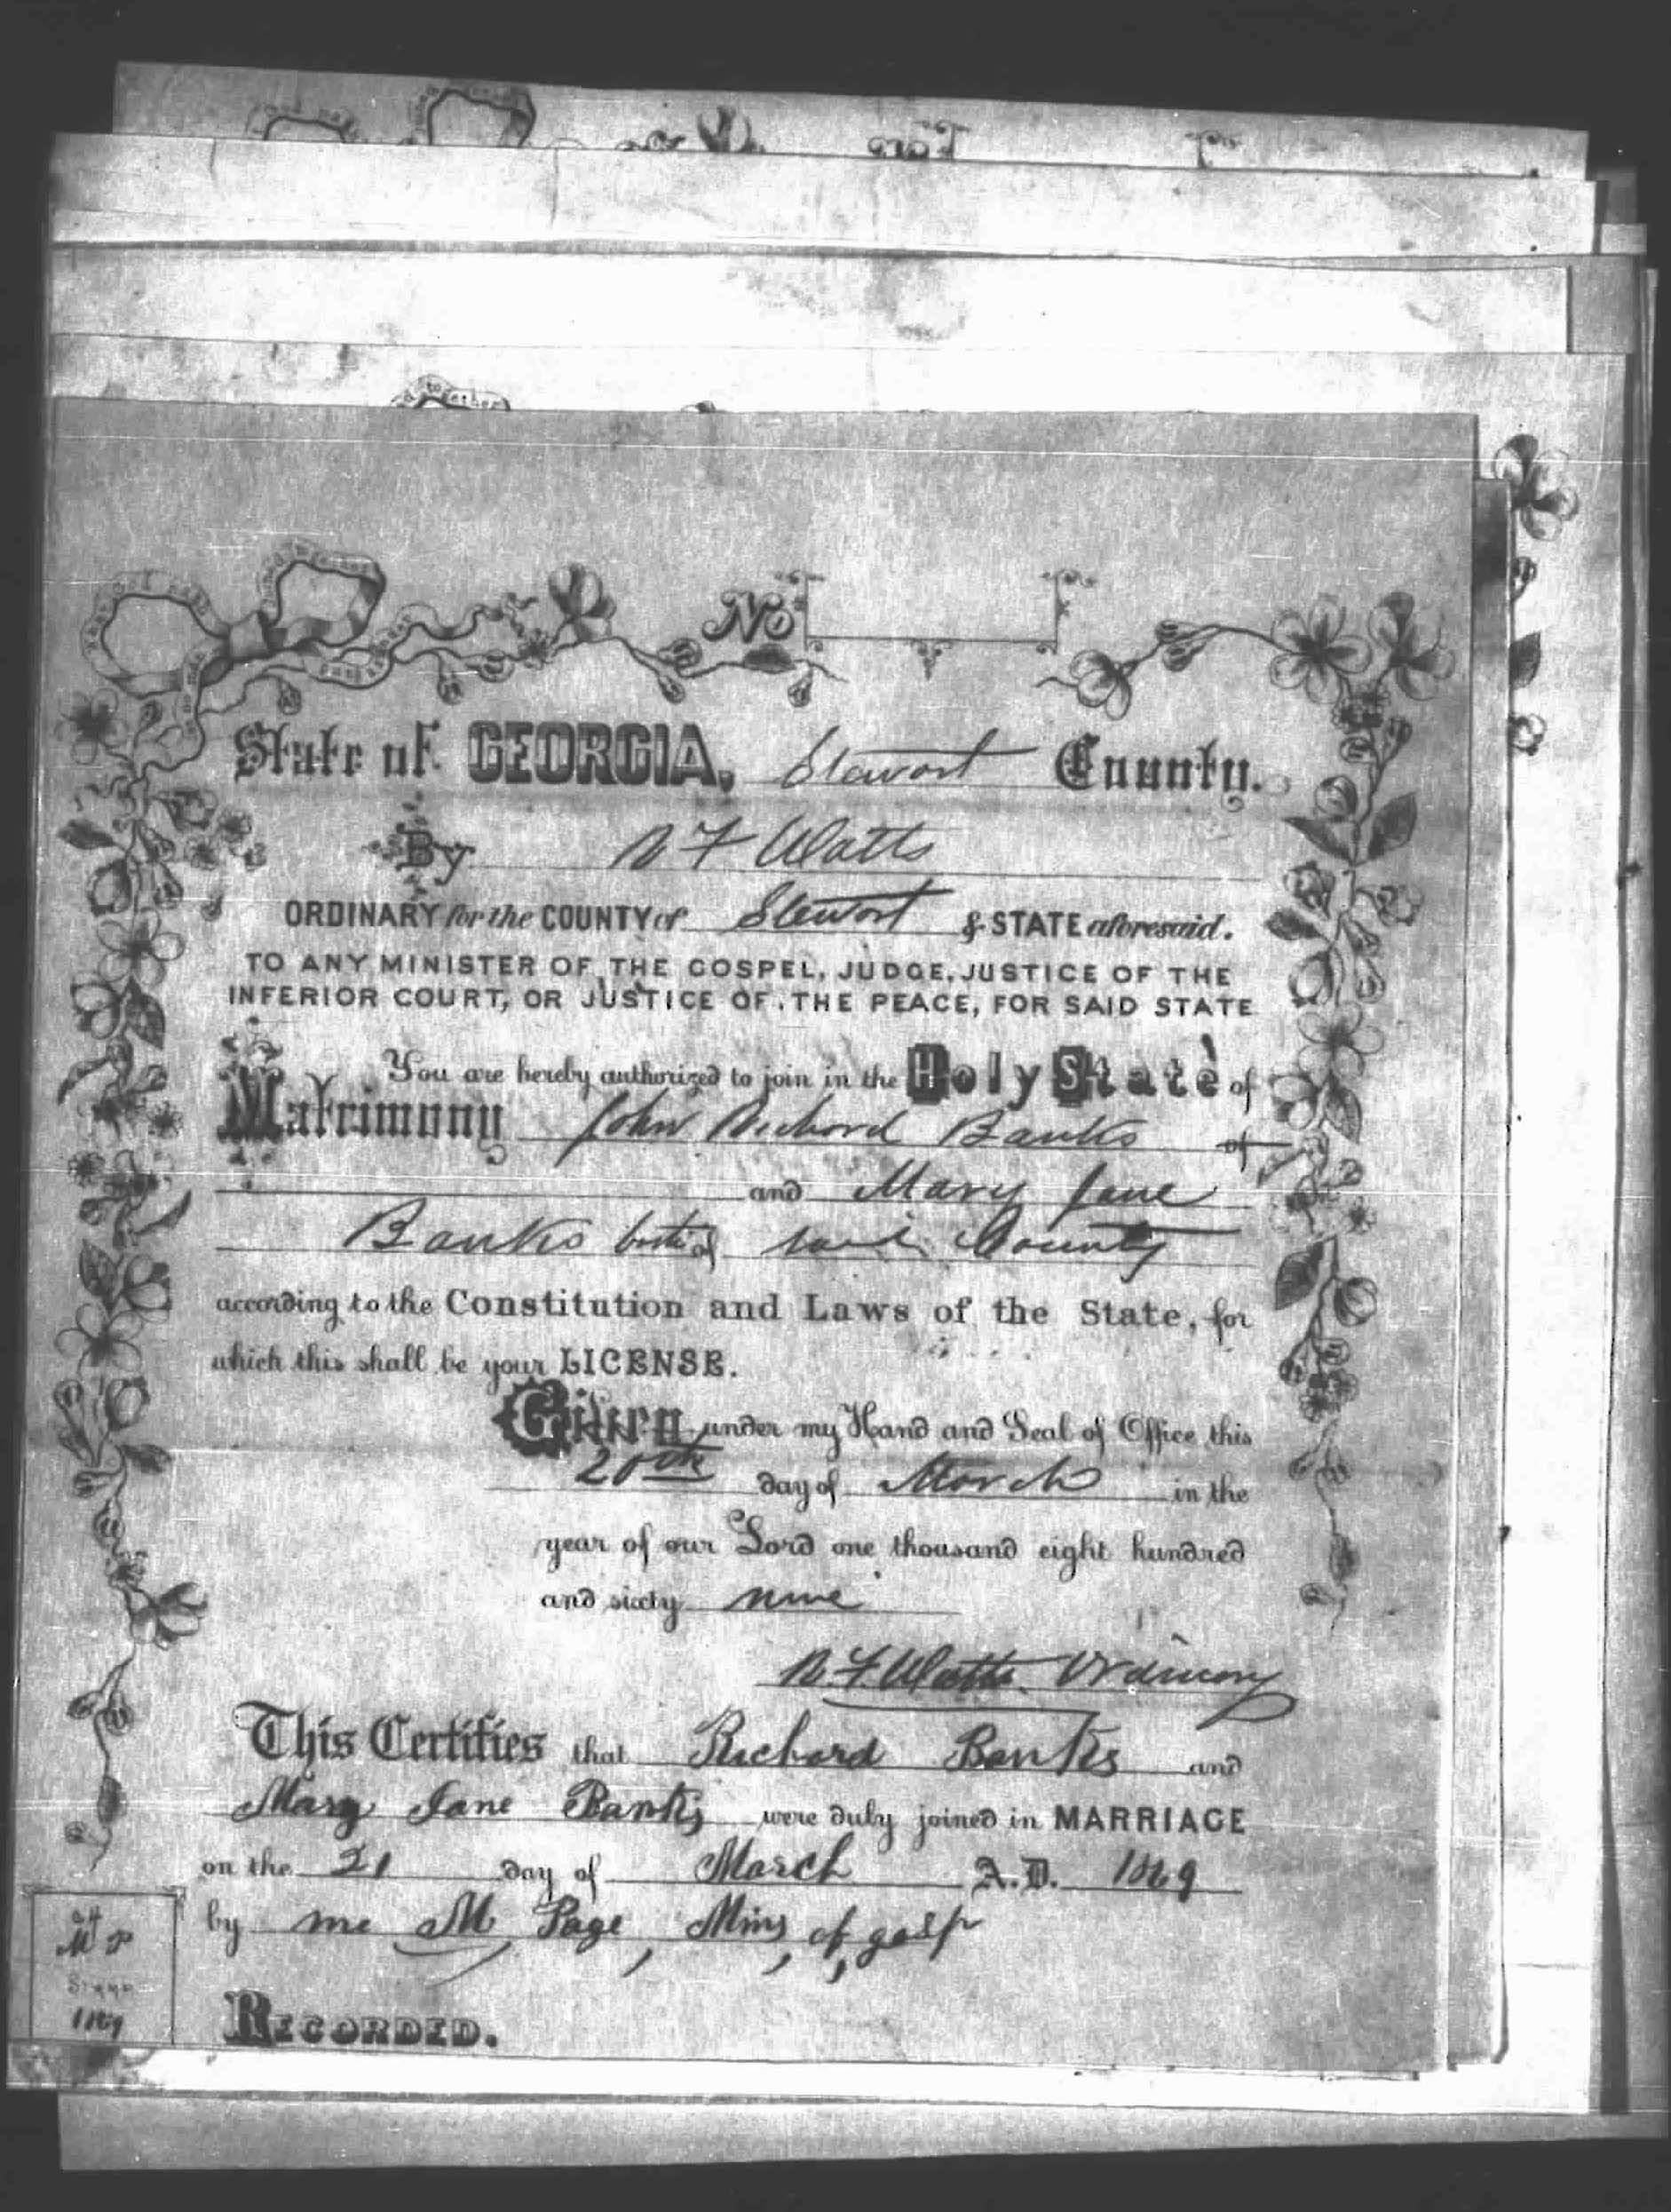 together
No
State of GEORGIA, Stewart County.
By N F Watts
ORDINARY for the COUNTY of Stewart & STATE aforesaid.
TO ANY MINISTER OF THE GOSPEL, JUDGE, JUSTICE OF THE
INFERIOR COURT, OR JUSTICE OF THE PEACE, FOR SAID STATE
You are hereby authorized to join in the Holy State of
Matrimony John Richard Banks of
and Mary Jane
Banks both of said County
according to the Constitution and Laws of the State, for
which this shall be your LICENSE.
Given under my Hand and Seal of Office this
20th day of March in the
year of our Lord one thousand eight hundred
and sixty nine
N. F. Watts Ordinary
This Certifies that Richard Banks and
Mary Jane Banks were duly joined in MARRIAGE
on the 21 day of March A.D. 1869
by me M Page, Mins, of, gosp
M P
1869
RECORDED.